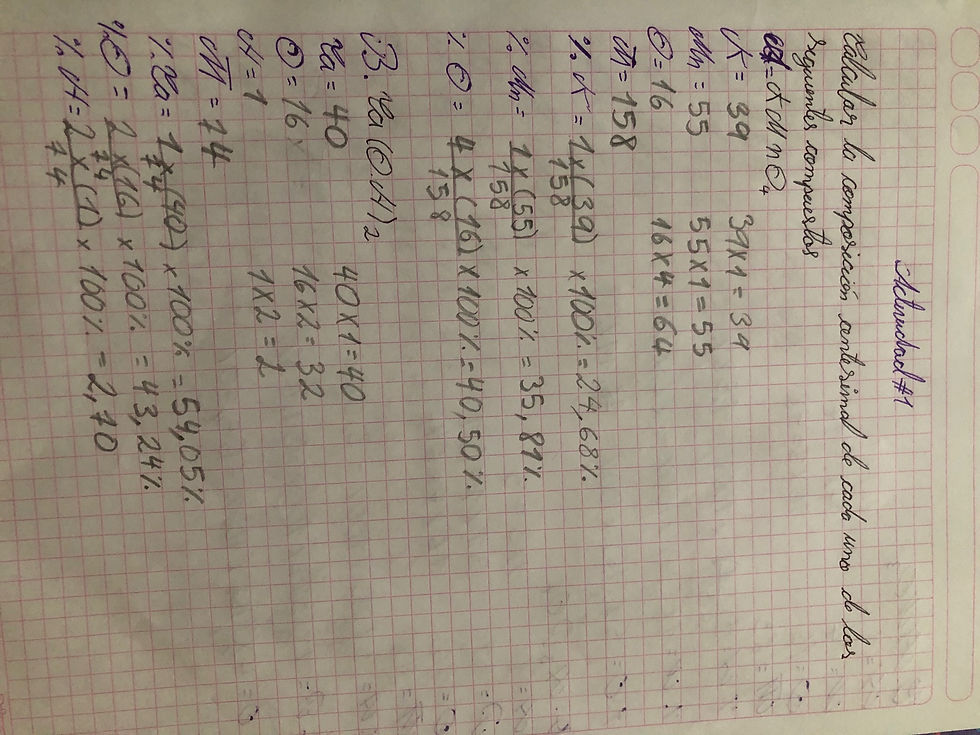 Actividad #1
Calcular la composición centesimal de cada uno de los
siguientes compuestos
= KMnO4
K = 39 39x1 = 39
Mn = 55 55x1 = 55
O = 16 16x4 = 64
M = 158
% K = 1x(39)/158 x 100% = 24,68%
% Mn = 1x(55)/158 x 100% = 35,81%
% O = 4x(16)/158 x 100% = 40,50%
B. Ca(OH)2
Ca = 40 40x1 = 40
O = 16 16x2 = 32
H = 1 1x2 = 2
M = 74
% Ca = 1x(40)/74 x 100% = 54,05%
% O = 2x(16)/74 x 100% = 43,24%
% H = 2x(1)/74 x 100% = 2,70